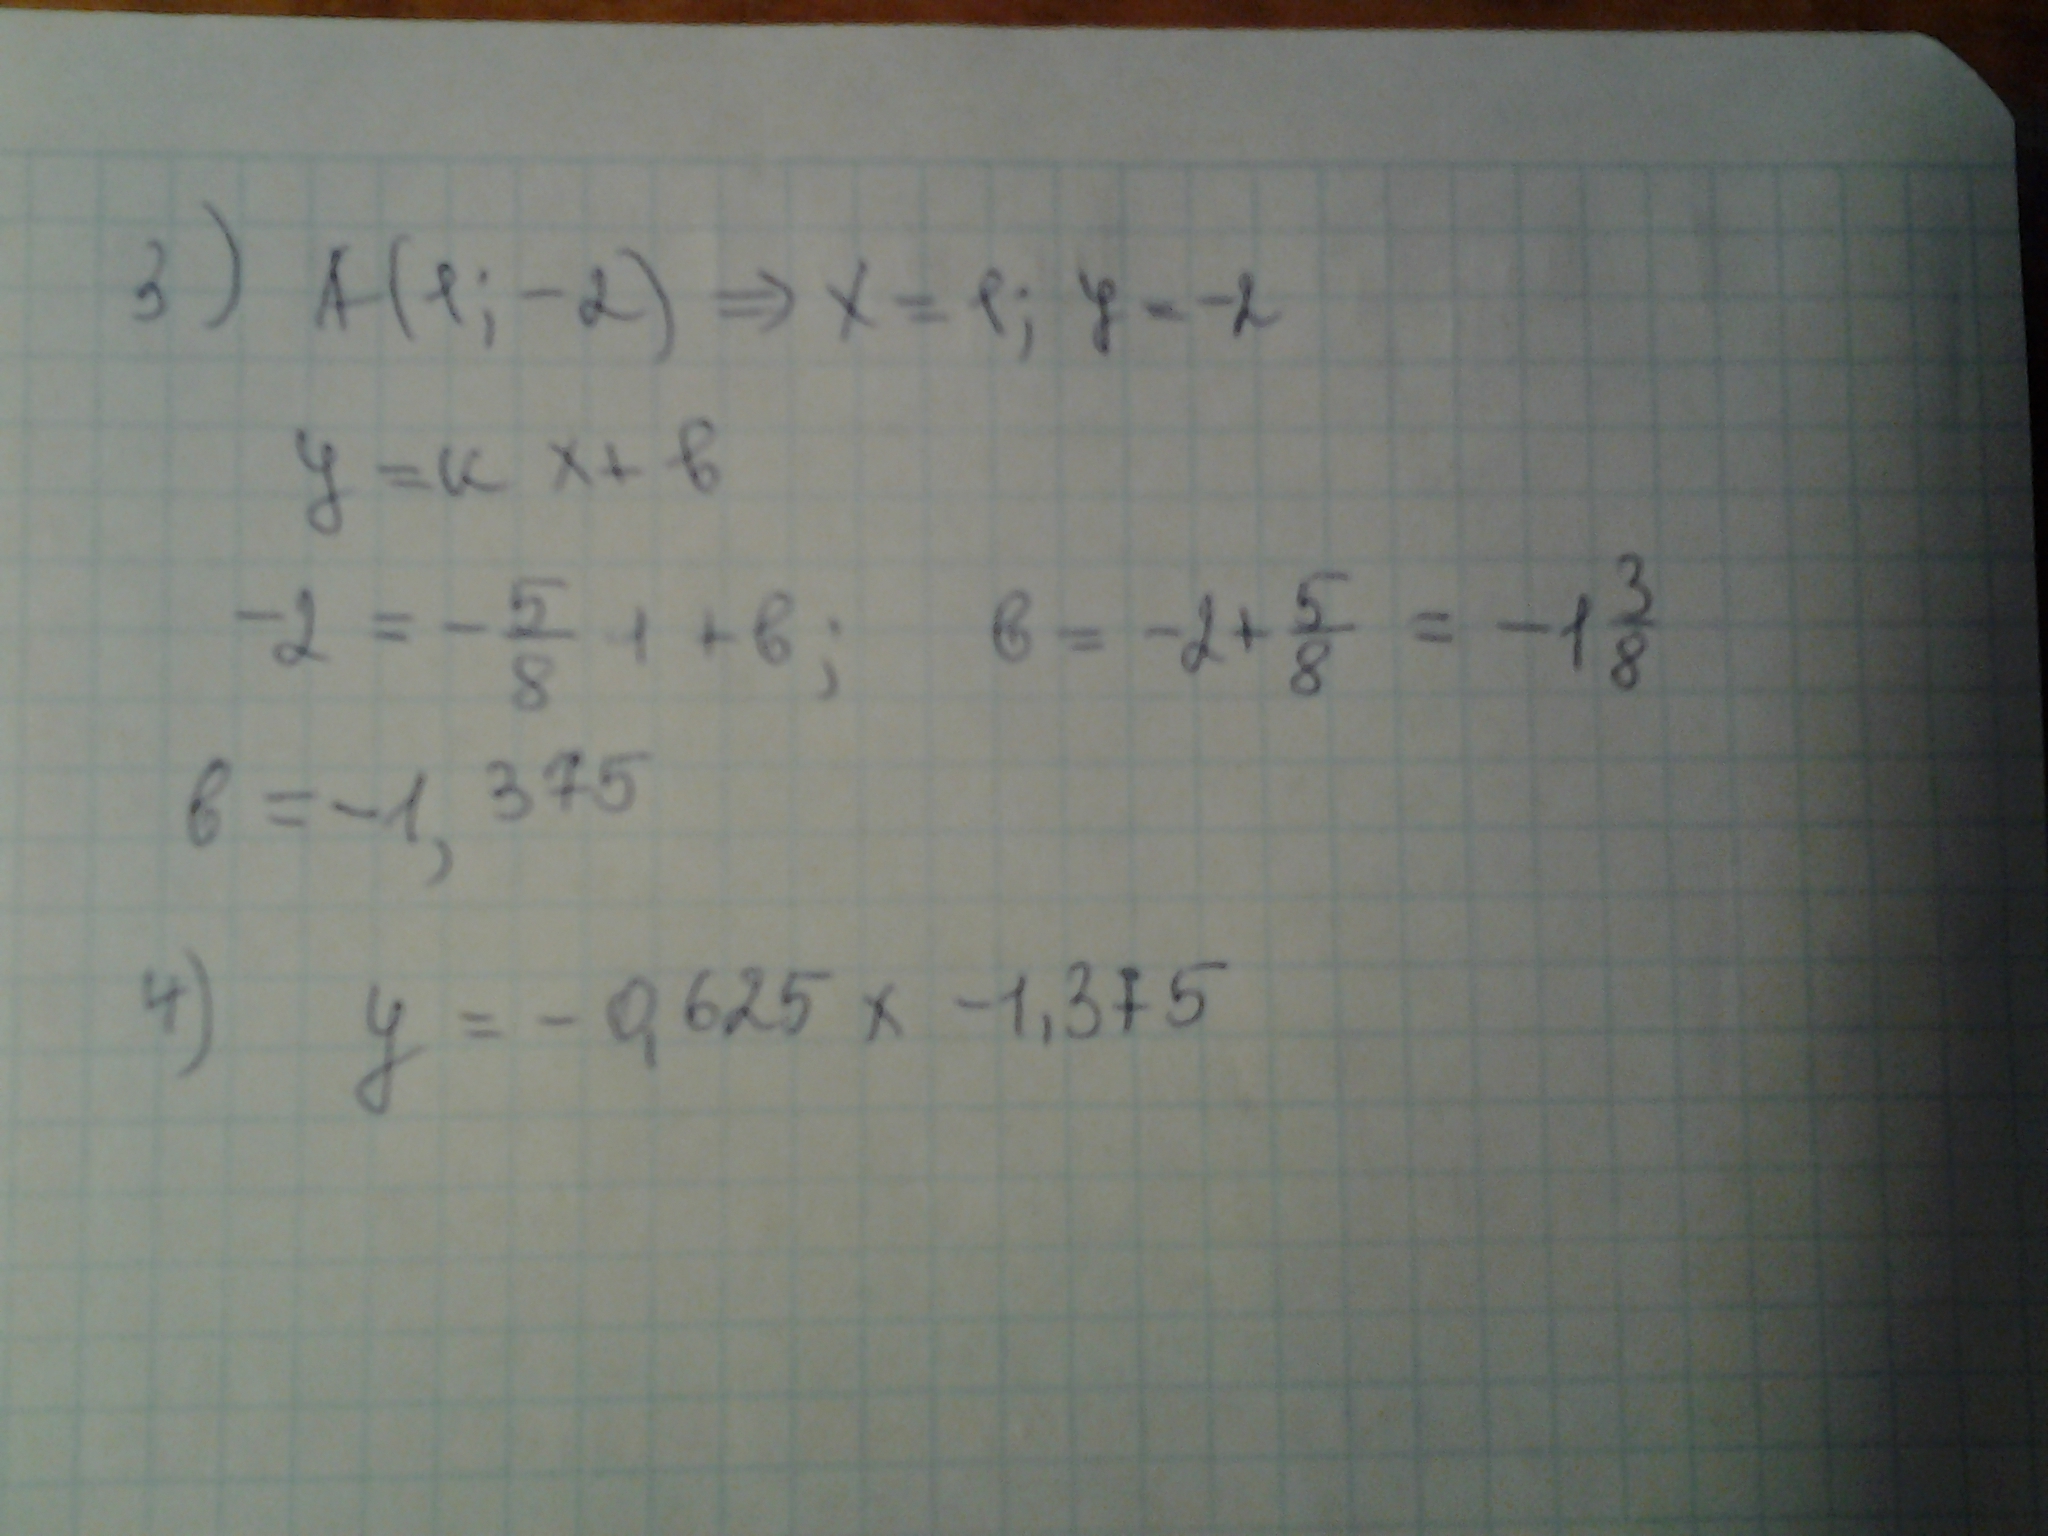 3) A(1; -2) ⇒ x = 1; y = -2
y = кx + в
-2 = -5/8 · 1 + в; в = -2 + 5/8 = -1 3/8
в = -1,375
4) y = -0,625x -1,375